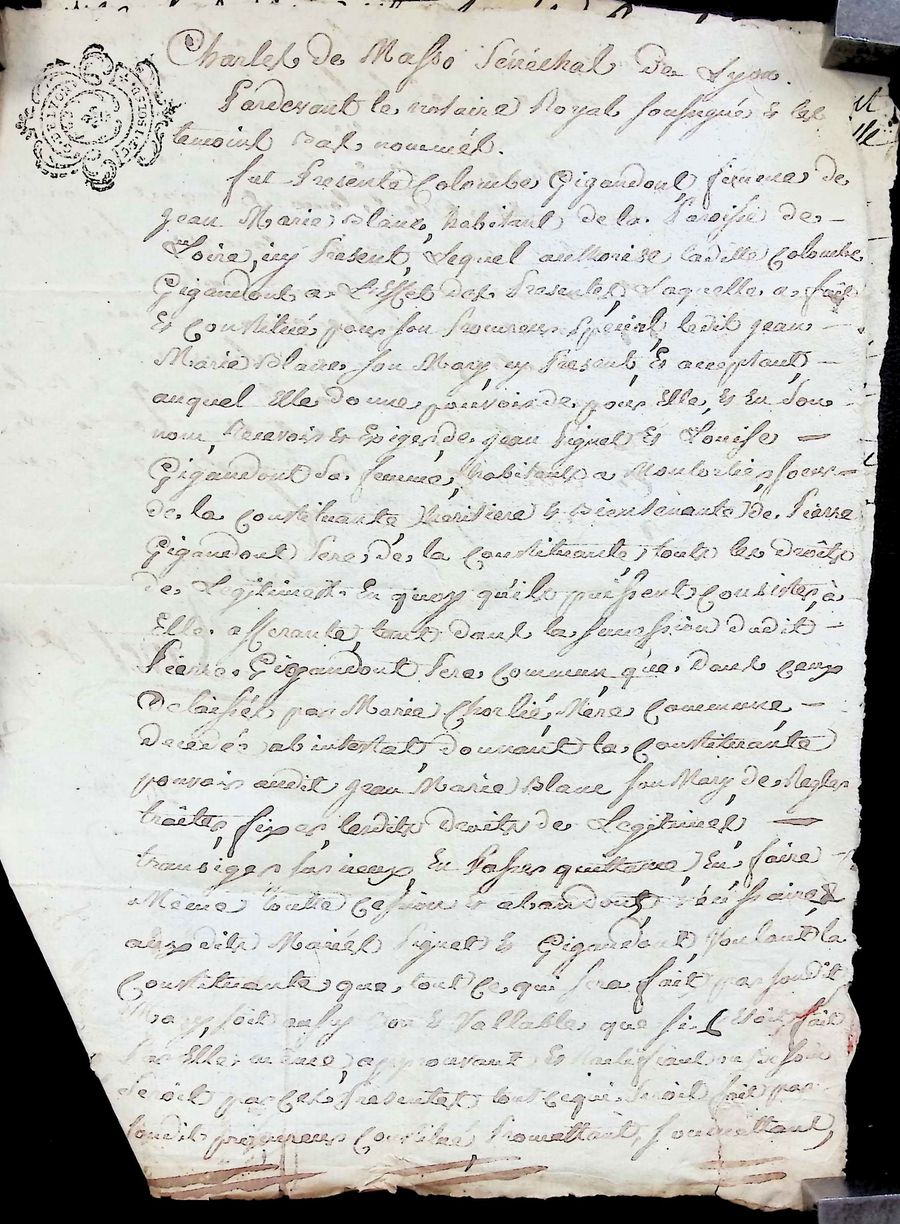 Charles de Masso Sénéchal de Lyon.
Pardevant le notaire Royal soussigné et les
temoins bas nommés.
fut Presente Colombe Gigandont femme de
Jean Marie Blanc, habitant de la Paroisse de
Loire, icy Present, Lequel authorise laditte Colombe
Gigandont a L'Effet des Presentes, Laquelle a fait
et constitué pour son Procureur special ledit Jean
Marie Blanc son Mary icy Present et acceptant,
auquel Elle donne pouvoir de pour Elle, et en son
nom, Recevoir et Exiger de Jean Pignet et Louise
Gigandont sa femme, habitants a soeur
de la constituante heritiere et bientenante de Pierre
Gigandont Pere, de la constituante, touts les droits
de Legitimes En quoy qu'ils puissent consister, à
Elle afferante, tant dans la succession dudit
Pierre Gigandont Pere commun que dans ceux
Delaissés par Marie Chorlié, Mere commune
decedés abintestat, donnant la constituante
pouvoir audit Jean Marie Blanc son Mary de Regler
traiter, fixer, lesdits droits de Legitimes,
transiger sur iceux, En Passer quittance, En faire
Meme toutte Cession et abandons nécéssaires
auxdits Mariés Pignet et Gigandont, Voulant la
Constituante que tout ce qui sera fait par sondit
Mary, soit aussy bon et Vallable que si C'etoit fait
Par Elle même, approuvant et Ratiffiant
Seroit par ces Presentes tout ce qui Seroit fait par
sondit procureur constitué Promettant, soumettant,